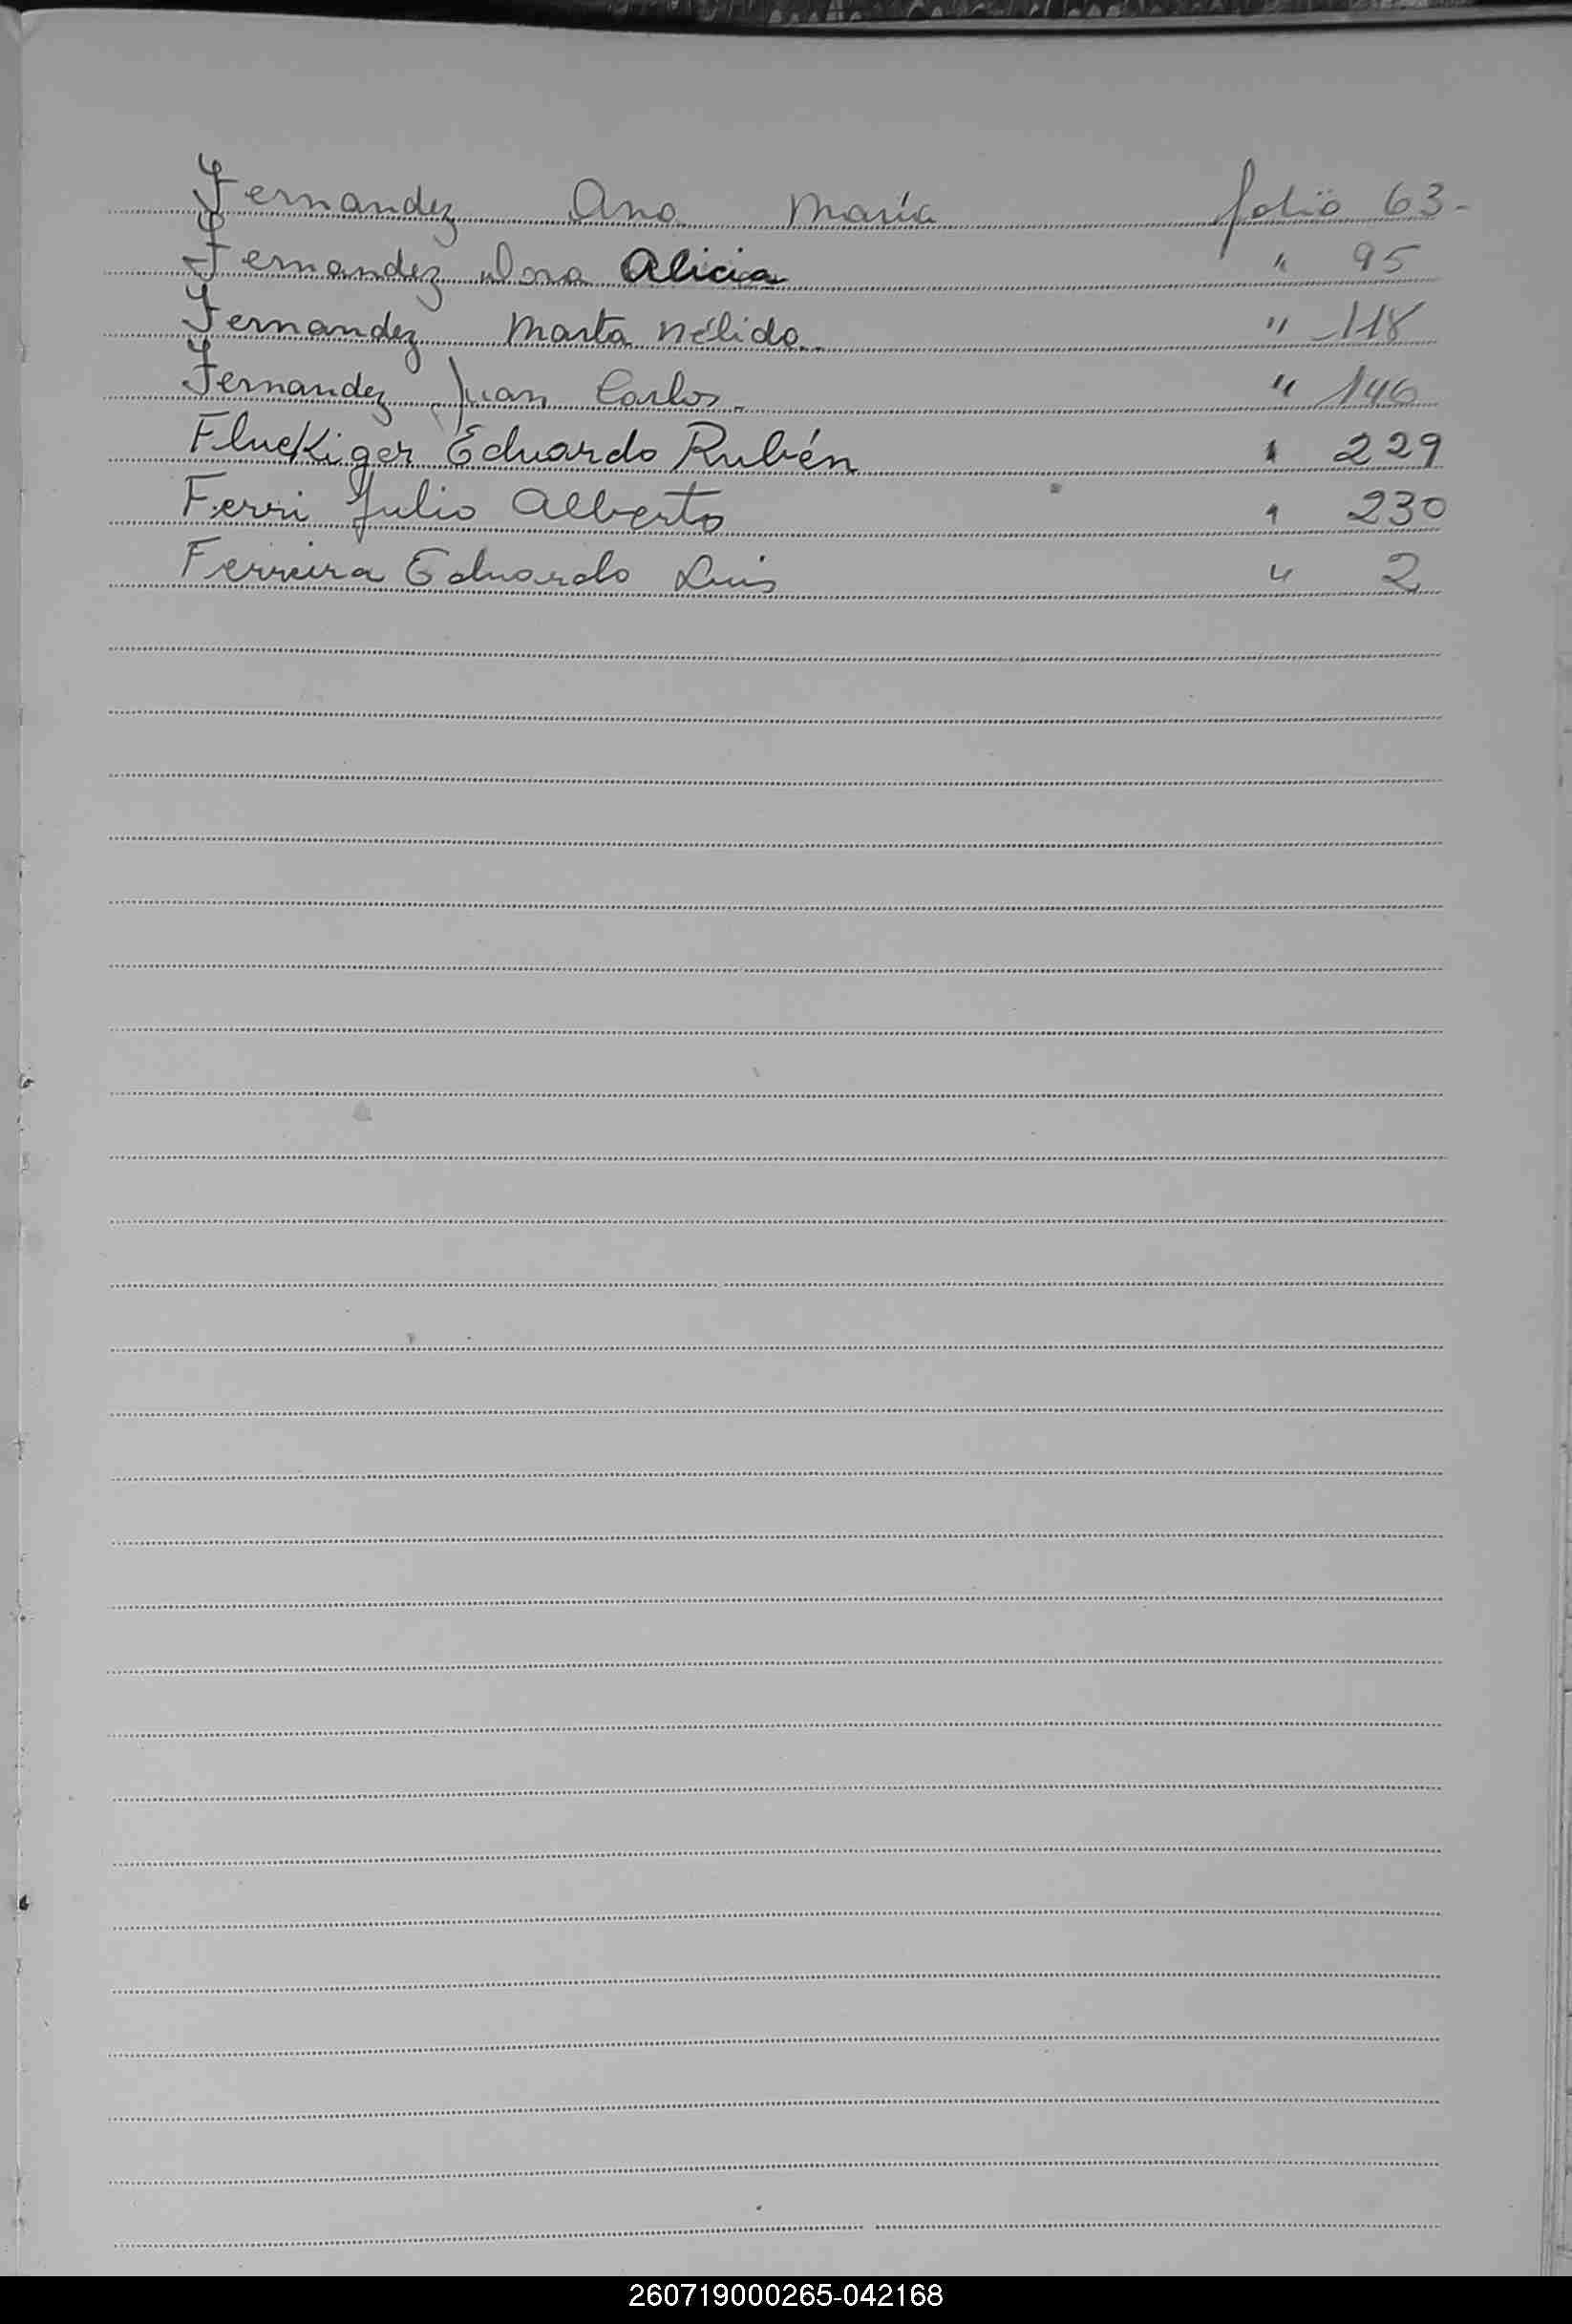 Fernandez Ana María folio 63-
Fernandez Dora Alicia " 95
Fernandez Marta Nélida. " 118
Fernandez Juan Carlos. " 146
Fluckiger Eduardo Rubén " 229
Ferri Julio Alberto " 230
Ferreira Eduardo Luis " 2
260719000265-042168